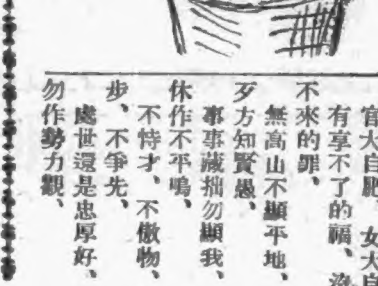 官大自
肥、女大自
有享不了的福、沒
不來的罪、
無高山不顯平地、
歹方知賢愚、
事事藏拙勿顯我、
休作不平鳴、
不恃才、不傲物、
步、不爭先、
處世還是忠厚好、
勿作勢力觀、